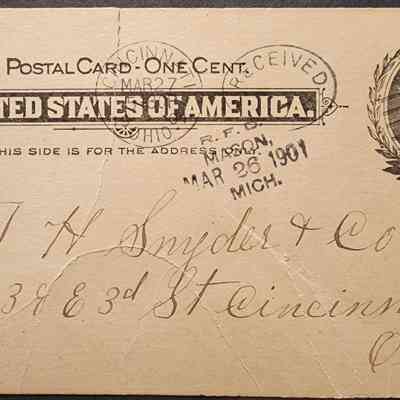 POSTAL CARD - ONE CENT.
TED STATES OF AMERICA.
THIS SIDE IS FOR THE ADDRESS ONLY.
CINCINN
MAR 27
OHIO
RECEIVED
R.F.D.
MASON,
MAR 26 1901
MICH.
H Snyder & Co
38 E 3d St Cincinn
O